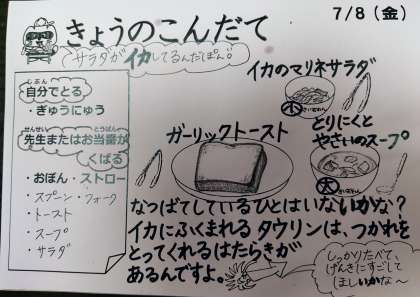 きょうのこんだて
7/8（金）
サラダがイカしてるんだぽん。
じぶん
自分でとる
・ぎゅうにゅう
せんせい とうばん
先生またはお当番が
くばる
・おぼん・ストロー
・スプーン・フォーク
・トースト
・スープ
・サラダ
イカのマリネサラダ
小
ガーリックトースト
とりにくと
やさいのスープ
大
なつばてしているひとはいないかな？
イカにふくまれるタウリンは、つかれを
とってくれるはたらきが
あるんですよ。
しっかりたべて、
げんきにすごして
ほしいかな〜